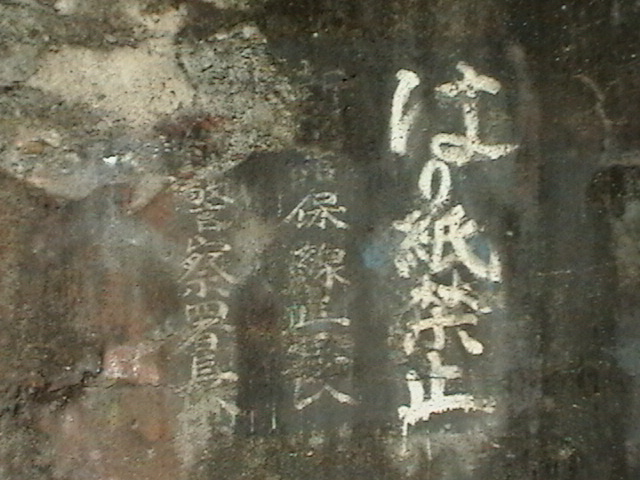 はり紙禁止
保線区長
警察署長